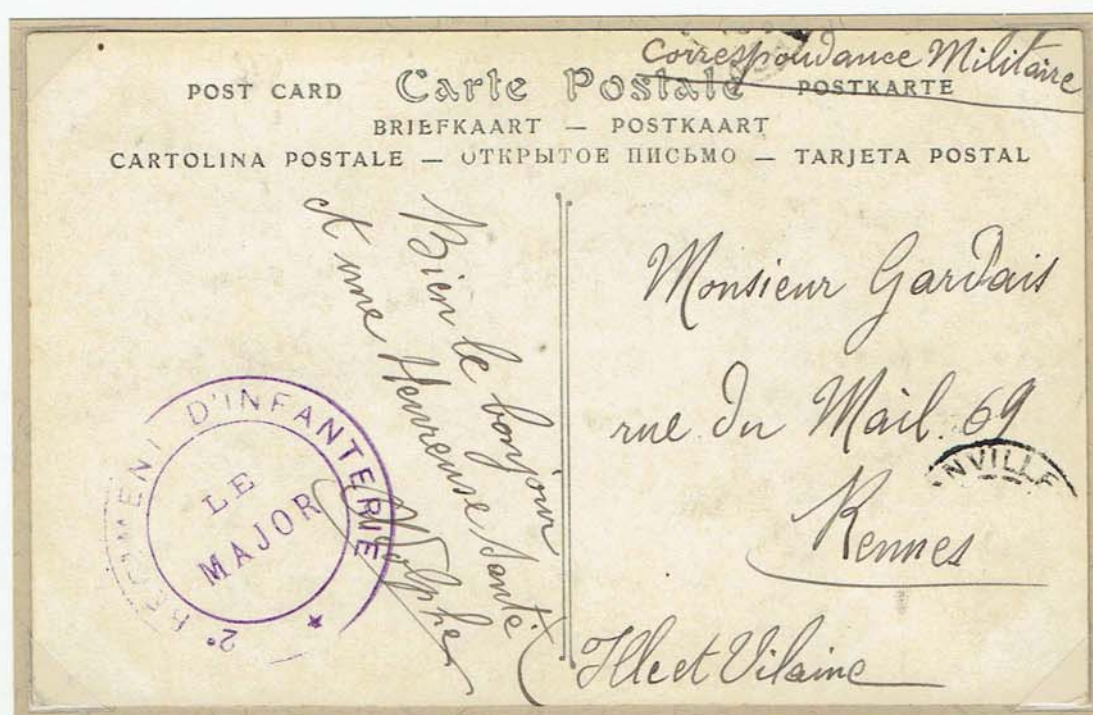 Correspondance Militaire
POST CARD Carte Postale POSTKARTE
BRIEFKAART — POSTKAART
CARTOLINA POSTALE — ОТКРЫТОЕ ПИСЬМО — TARJETA POSTAL
Bien le bonjour
et une Heureuse Santé
Adolphe
2e REGIMENT D'INFANTERIE
LE
MAJOR
Monsieur Gardais
rue du Mail. 69
NVILLE
Rennes
Ille et Vilaine